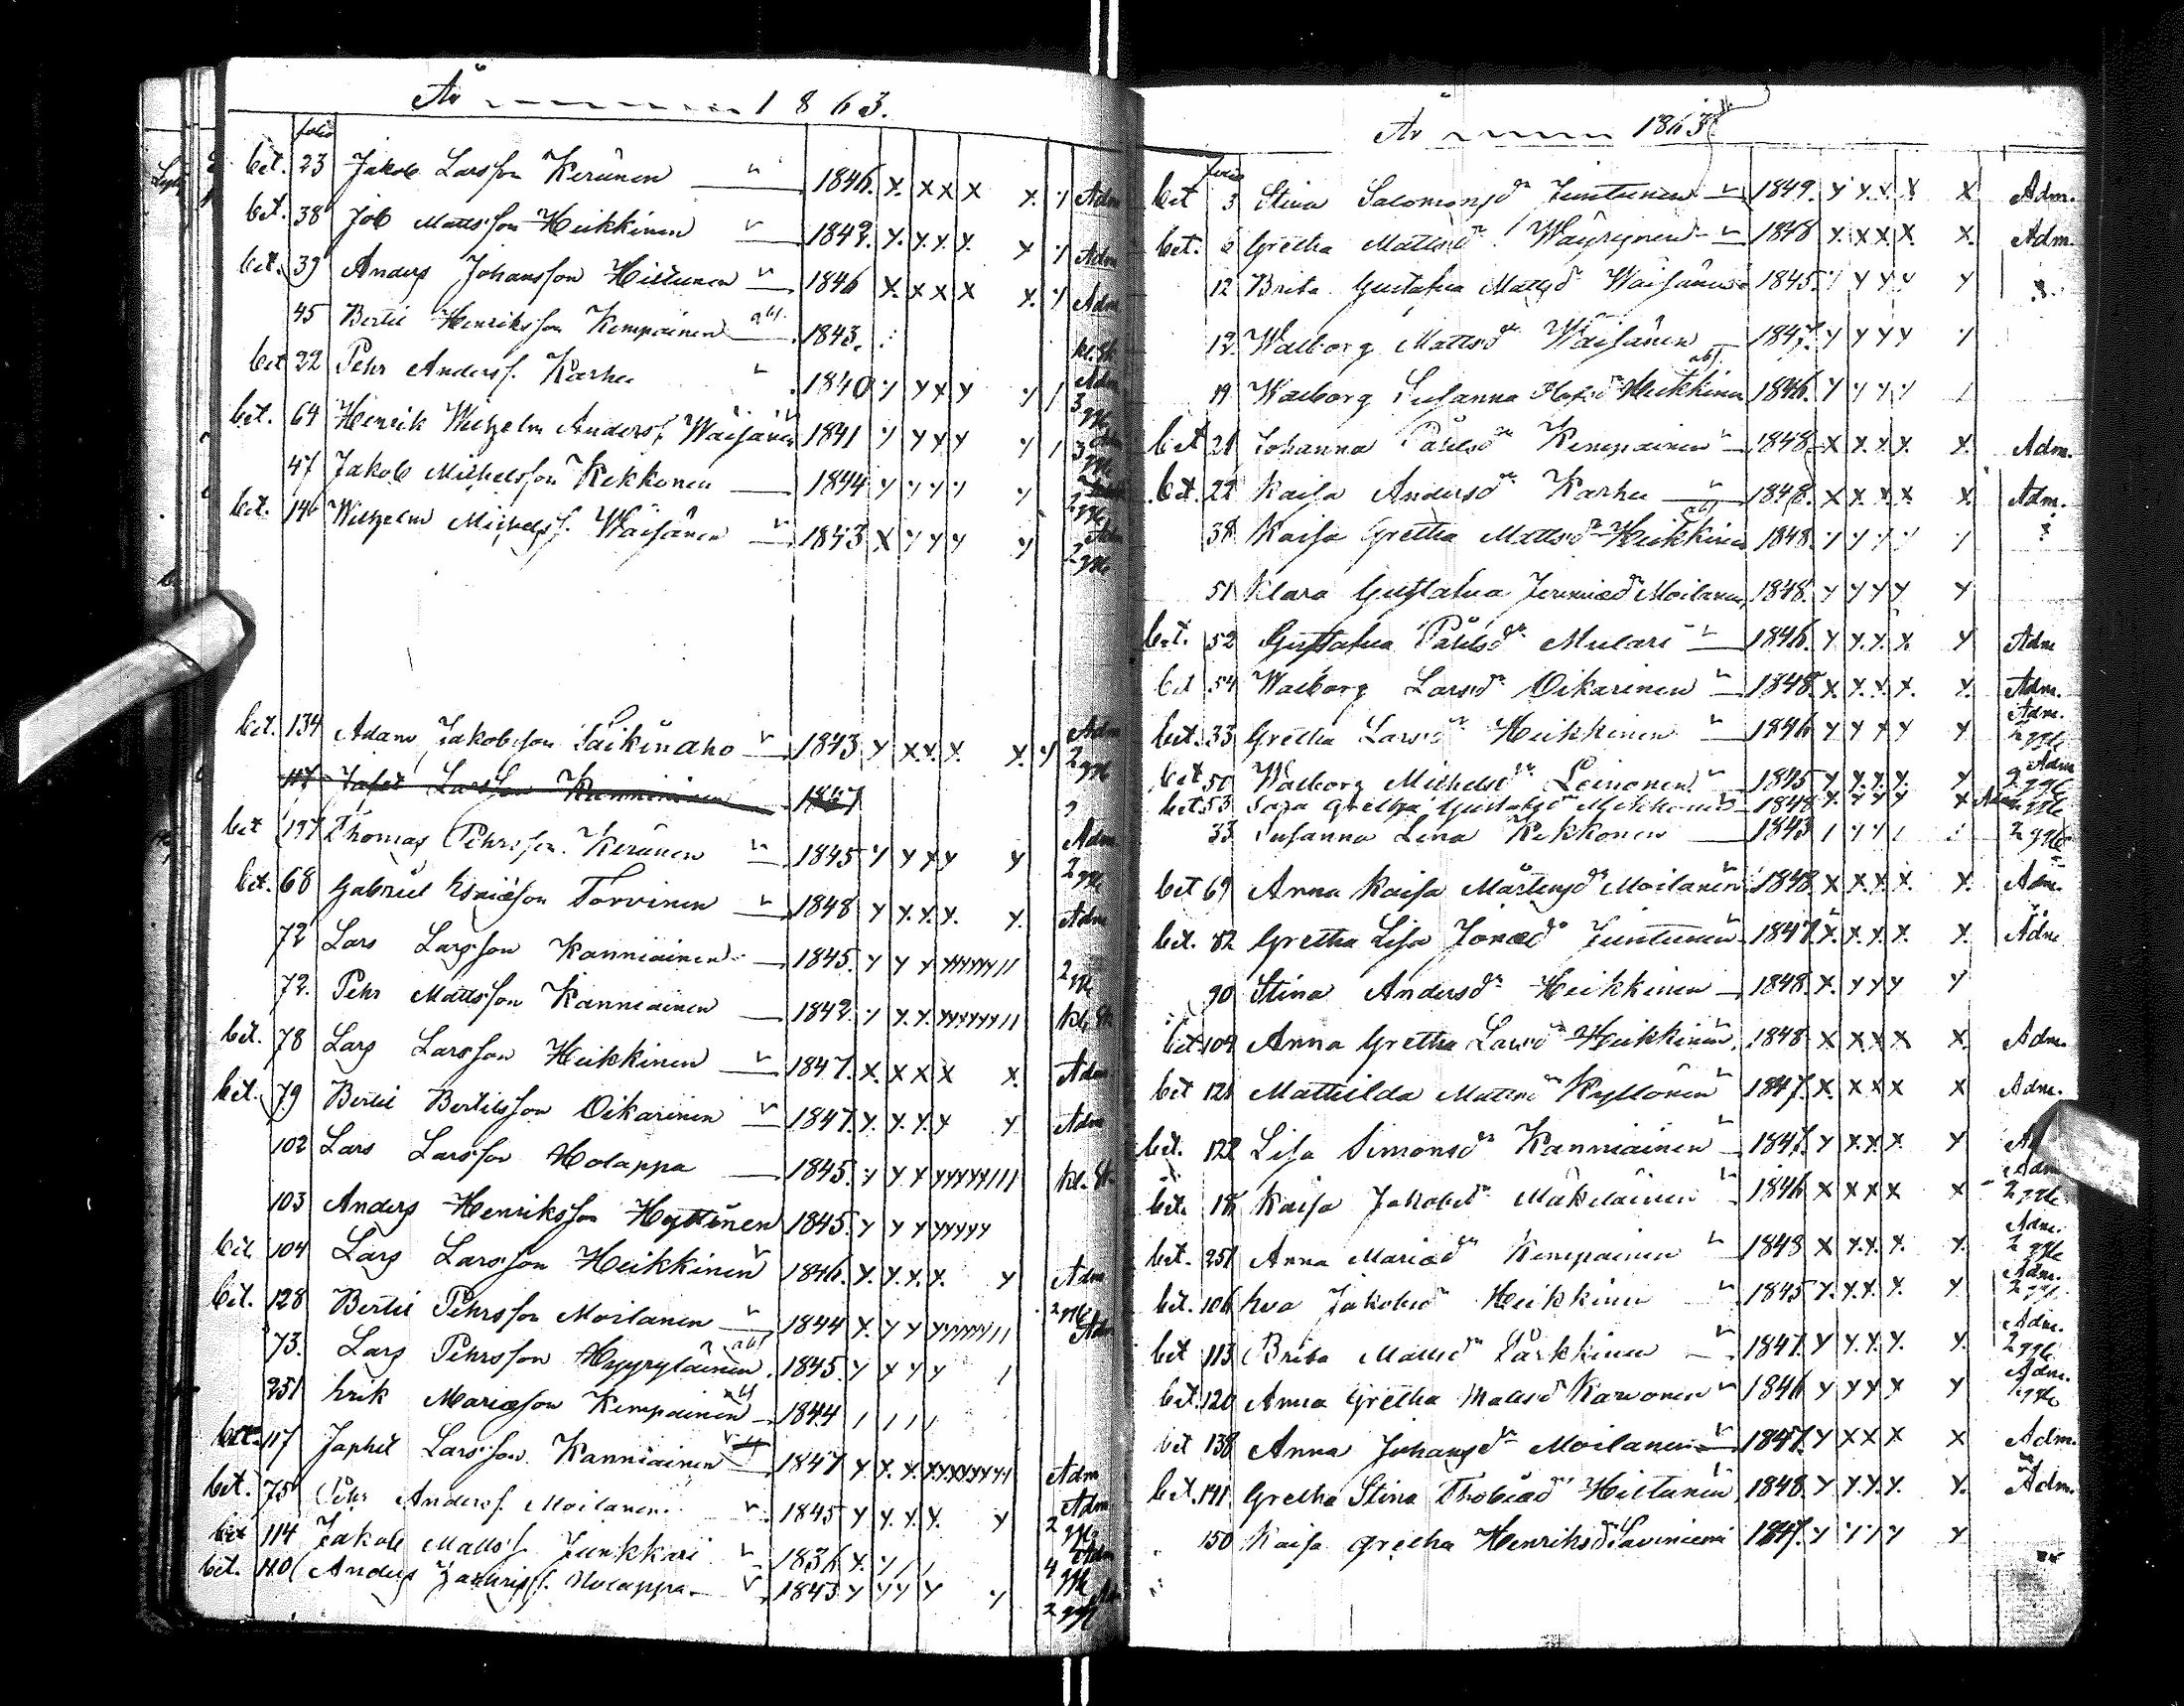 År 1863.
folio
bet. 23 Jakob Larsson Keränen 1846. x. x x x x. y Adm
bet. 38 Job Mattsson Heikkinen 1842. y. y. y. y. y y Adm
bet. 39 Anders Johansson Hiltunen 1846 x. x x x x. y Adm
45 Bertil Henriksson Kempainen abs. 1843. kl. St.
bet 32 Pehr Andersf. Karhu 1840 y y y y y / Adm 3 gge
bet. 64 Henrik Wilhelm Andersf. Wäisänen 1841 y y y y y / Adm 3 gge
47 Jakob Michelsson Kekkonen 1844 y y y y y 2 gge
bet. 146 Wilhelm Michelsf. Wäisänen 1843 x y y y y Adm 2 gge
bet. 134 Adam Jakobsson Säikinaho 1843 y x x. x. x. y Adm 2 gge
117 Jafet Larsson Kanniainen 1847
bet 197 Thomas Pehrsson Keränen 1845 y y y y y Adm 2 gge
bet. 68 Gabriel Esaiæson Torvinen 1848 y y. y. y. y. Adm
72 Lars Larsson Kanniainen 1845. y y y yyyyyy// 2 gge
72. Pehr Mattsson Kanniainen 1842. y y. y. yyyyyy// kl. St.
bet. 78 Lars Larsson Heikkinen 1847. x. x x x x. Adm
bet. 79 Bertil Bertilsson Oikarinen 1847. y. y. y. y y Adm
102 Lars Larsson Holappa 1845. y y y yyyyyy/// kl. St.
103 Anders Henriksson Hyttinen 1845. y y y yyyyy
bet 104 Lars Larsson Heikkinen 1846. y. y. y. y. y Adm
bet. 128 Bertil Pehrsson Moilanen 1844 x. y y yyyyyy// 2 gge Adm
73. Lars Pehrsson Hyyryläinen abs 1845. y y y y /
251 Erik Mariæson Kempainen abs 1844 / / / /
bet. 117 Japhet Larsson Kanniainen 1847 y y. y. xyxyyyyy Adm
bet. 75 Pehr Andersf. Moilanen 1845 y y. y. y. y Adm 2 gge
bet 114 Jakob Mattsf. Junkkari 1836 x. y / / Adm 4 gge
bet. 110 Anders Zachrisf. Holappa 1843 y y y y y 2 gge
År 1863
folio
bet 3 Stina Salomonsdr Juntunen 1849. y y. y. x x Adm.
bet. 6 Gretha Mattsdr Wäyrynen 1848 y. x x x. x. Adm.
12 Brita Gustafva Mattsdr Wäisänen 1845. y y y y y
12 Walborg Mattsdr Wäisänen 1847. y y y y y
19 Walborg Susanna Heikkinen abs. 1846. y y y y /
bet 21 Johanna Påhlsdr Kempainen 1848. x x. y. y. x. Adm.
bet. 22 Kaisa Andersdr Karhu 1848. x x. x. x. x. Adm.
38 Kaisa Gretha Mattsdr Heikkinen abs 1848. y y y y y
51 Klara Gustafva Jeremiædr Moilanen 1848. y y y y y
bet. 52 Gustafva Påhlsdr Mulari 1846. y y. y. x. y Adm
bet 54 Walborg Larsdr Oikarinen 1848. x. y. y. x. y. Adm.
bet. 33 Gretha Larsdr Heikkinen 1846 y y y y y Adm. 2 gge
bet 50 Walborg Michelsdr Leinonen 1845 y y. y. y. y Adm 2 gge
bet 53 Saga Gretha Gustafsdr Mikkonen 1848 y. y y y x Adm 2 gge
33 Susanna Lena Kekkonen 1843 / y y / 2 gge
bet 69 Anna Kaisa Mårtensdr Moilanen 1848. x x. y. x. y. Adm.
bet. 82 Gretha Lisa Jonædr Juntunen 1847. x. x. x. x. x. Adm
90 Stina Andersdr Heikkinen 1848. x. y y y y
bet 104 Anna Gretha Larsdr Heikkinen 1848 x x x x x. Adm.
bet 121 Mathilda Mattsdr Kyllönen 1847. x. x x x x Adm.
bet. 122 Lisa Simonsdr Kanniainen 1847. y x. x. x. y
bet. Kaisa Jakobsdr Mäkeläinen 1846 x x x x x Adm 2 gge
bet. 251 Anna Mariædr Kempainen 1848 x y. y. y. y. Adm. 2 gge
bet. 106 Eva Jakobsdr Heikkinen 1845 y. y. y. y. y Adm. 2 gge
bet 113 Brita Mattsdr Pärkkinen 1847. y y. y. y. y. Adm. 2 gge
bet. 120 Anna Gretha Mattsdr Karvonen 1846 y y y y y Adm. 2 gge
bet 138 Anna Johansdr Moilanen 1847. y x x x x Adm.
bet. 141. Gretha Stina Thobiædr Hiltunen 1848. y y. y. y. y. Adm.
150 Kaisa Gretha Henriksdr Saviniemi 1847. y y y y y